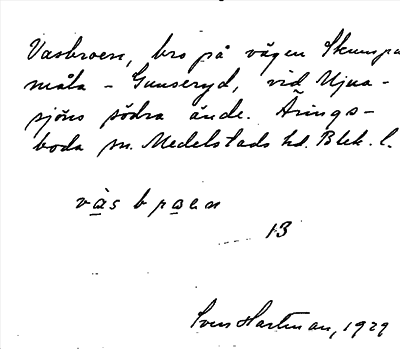 Vasbroen, bro på vägen Skumpa
måla - Gunseryd, vid Mjua-
sjöns södra ände. Årings-
boda sn. Medelstads hd. Blek. l.
vàs broen
13
Sven Hartman, 1929